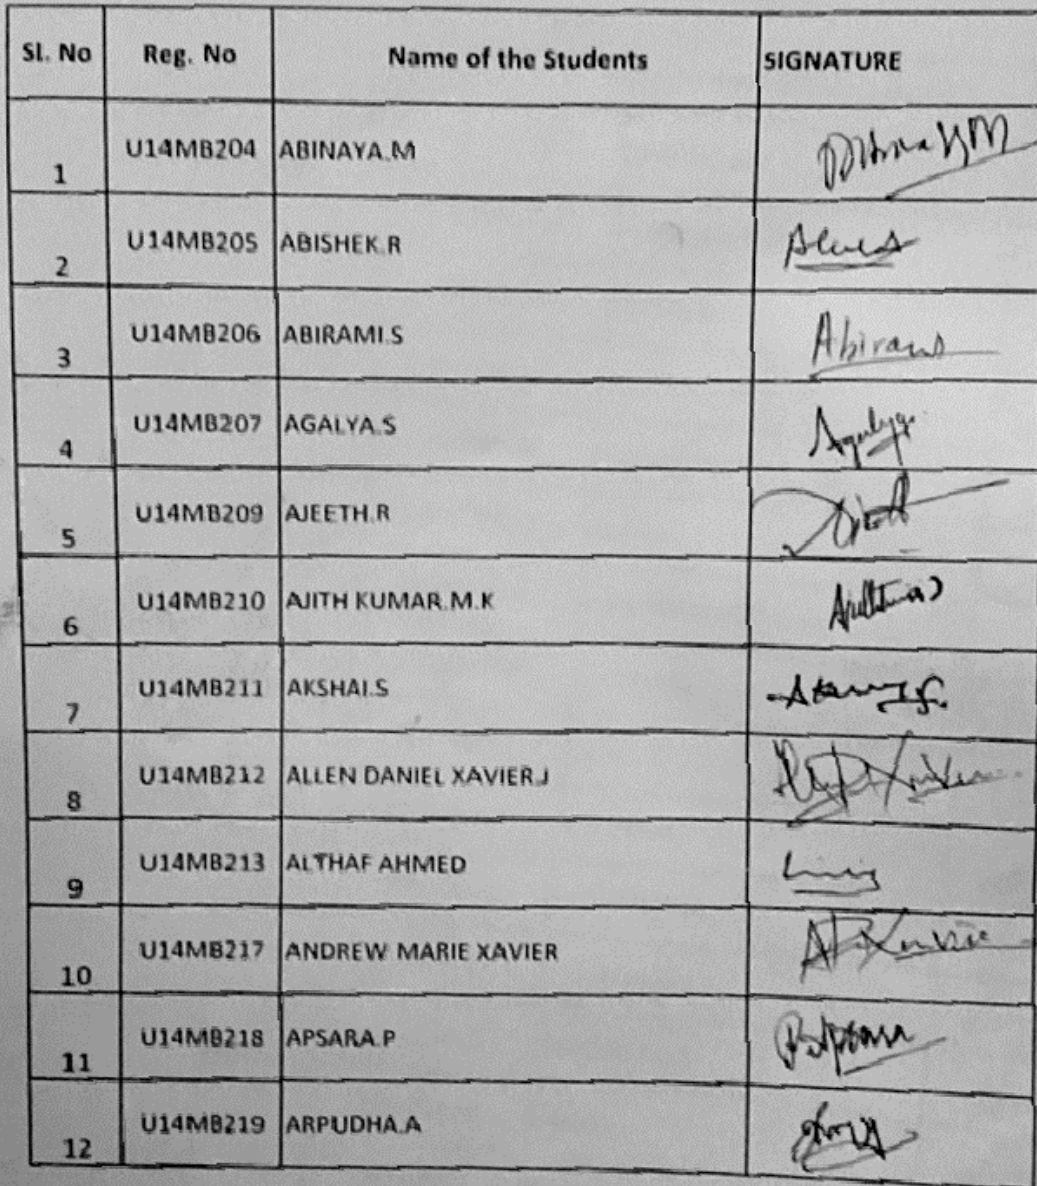 Sl. No Reg. No Name of the Students SIGNATURE
1 U14MB204 ABINAYA.M
2 U14MB205 ABISHEK.R
3 U14MB206 ABIRAMI.S
4 U14MB207 AGALYA.S
5 U14MB209 AJEETH.R
6 U14MB210 AJITH KUMAR.M.K
7 U14MB211 AKSHAI.S
8 U14MB212 ALLEN DANIEL XAVIER.J
9 U14MB213 ALTHAF AHMED
10 U14MB217 ANDREW MARIE XAVIER
11 U14MB218 APSARA.P
12 U14MB219 ARPUDHA.A